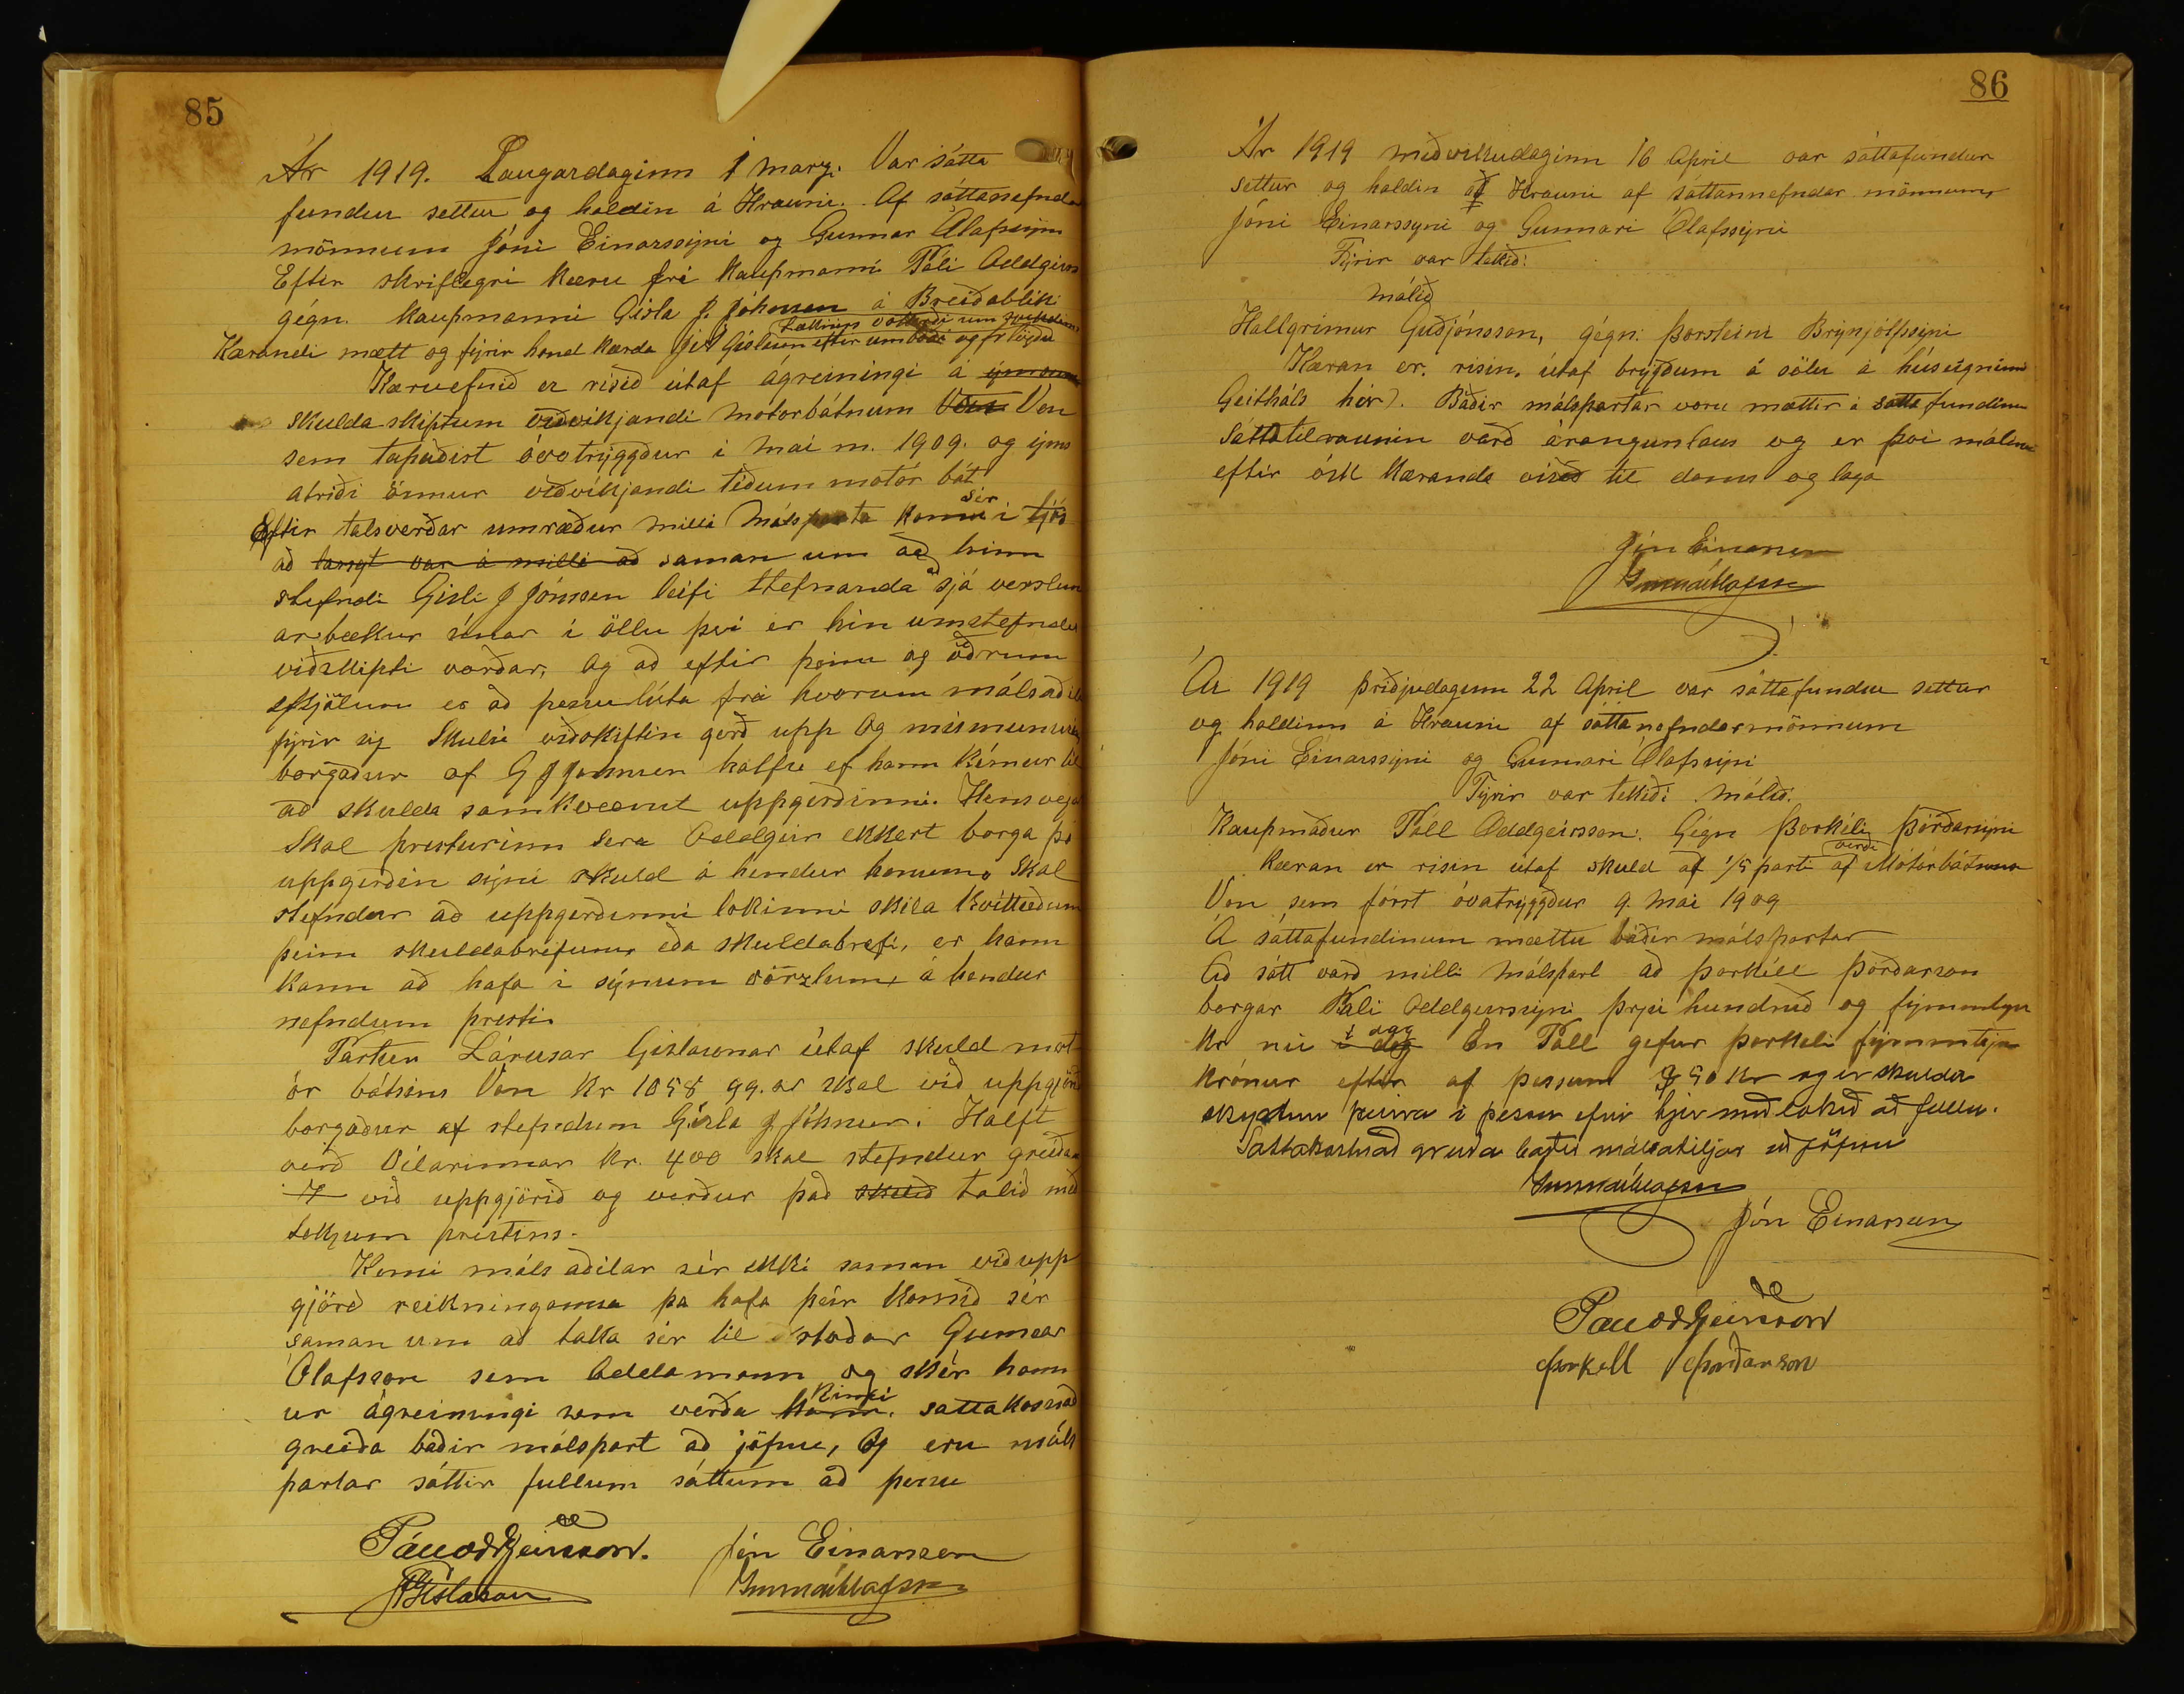 85
Ár 1919. Laugardaginn 1 marz. Var sátta
fundur settur og haldin á Hrauni. Af sáttanefndar
mönnum Jóni Einarssyni og Gunnar Ólafssyni
Eftir skriflegri kæru frá kaupmanni Páli Oddgeirs
gégn. kaupmanni Gísla J. Johnsen á Breiðabliki
Kærandi mætt og fýrir hönd kærda Jes A Gíslason eftir umboði og frlögdu
Kæruefnið er risið útaf ágreiningi á
skuldaskiptum viðvíkjandi mótorbátnum Von
sem tapaðist óvatrýggður i mai m. 1909. og ýms
atriði önnur viðvíkjandi téðum motór bát
Eftir talsverðar umræður milli málsparta komu sér i
að tarsyt var á milli að saman um að hinn
stefndi Gísli J Jónsson leifi stefnanda að sjá verslun
ar bækur sínar i öllu því er hin umstefndu
viðskipti varðar, og að eftir þeim og öðrum
skjölum er að þessu lúta frá hvorum málsaðila
fýrir sig skulu viðskiftin gerð upp og mismunurin
borgaður af G J Johnsen hálfu ef hann kémur til
að skulda samkvæmt uppgerðinni. Hins vegar
skal presturinn sera Oddgeir ekkert borga þó
uppgerðin sýni skuld á hendur honum, skal
stefndur að uppgerðinni lokinni skila kvittuðum
þeim skuldabréfum, eða skuldabréfi, er hann
kann að hafa i sýnum vörzlum, á hendur
nefndum presti.
Partur Lárusar Gíslasonar útaf skuld mot
ór bátsins Von Kr 1058 99. ar skal við uppgjörð
borgaður af stefndum Gísla J Johnsen. Hálft
verð Vélarinnar Kr. 400 skal stefndur greiða
við uppgjörið og verður það skuld talið með
tekjum préstsins.
Komi máls aðilar sér ekki saman við upp
gjörð reikninganna þa hafa þeir komið sér
saman um að taka sér til aðstoðar Gunnar
Ólafsson sem Oddamann og skér hann
ur ágreiningi sem verða kann. kinni sattakostnað
greiða báðir málspart að jöfnu, Og eru máls
partar sáttir fullum sáttum að þessu
Páll Oddgeirsson. Jón Einarsson
JAGíslason Gunnar Ólafsson
86
Ár 1919 miðvikudaginn 16 April var sáttafundur
settur og haldin af Hrauni af sáttannefndar mönnum,
Jóni Einarssyni og Gunnari Ólafssyni
Fýrir var tekið:
málið
Hallgrimur Guðjónsson, gégn. Þorsteini Brynjólfssyni
Kæran er. risin. útaf brygðum á sölu á húseigninni
Geitháls hér). Báðir málspartar voru mættir á sáttafundinn
Sáttatilraunin varð árangurslaus og er því málinu
eftir ósk kæranda vísað til doms og laga
Jón Einarsson
Gunnar Ólafsson
Ár 1919 þriðjudaginn 22 April var sáttafundur settur
og haldinn á Hrauni af sáttanefndarmönnum
Jóni Einarssyni og Gunnari Ólafssyni
Fýrir var tekið: málið.
Kaupmaður Páll Oddgeirsson. Gégn Þorkéli Þórðarsyni
Kæran er risin útaf skuld af 1/5 parti af verði Mótorbátnum
Von sem fórst óvatrýggður 9. Mai 1909
Á sáttafundinum mættu báðir málspartar
Að sátt varð milli málspart að Þorkéll Þórðarson
borgar Páli Oddgeirssyni þrjú hundruð og fýmmtyu
Kr nú í dag dagg En Páll gefur Þorkeli fýmmtýu
krónur eftir af þessum 350 kr og er skulda
skyptum þeirra i þessu efni hjer með lokið að fullu.
Sattakostnað greiða báðir málsaðiljar að jöfnu
Gunnar Ólafsson
Jón Einarsson
Páll Oddgeirsson
Þorkell Þorðarson